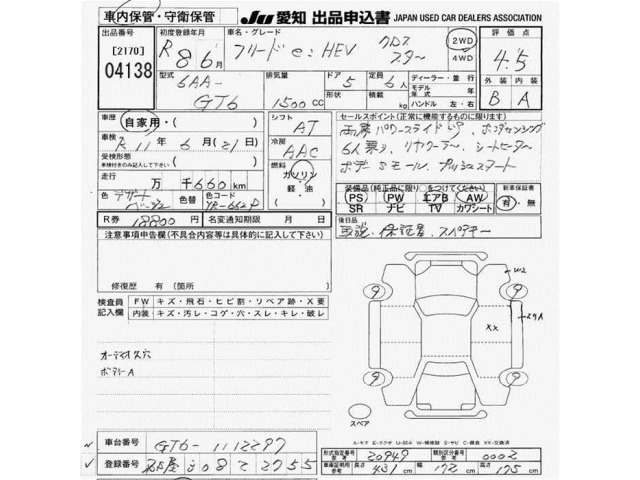 車内保管・守衛保管
JU 愛知 出品申込書 JAPAN USED CAR DEALERS ASSOCIATION
出品番号
[2170]
04138
初度登録年月
R 8年 6月
車名・グレード
フリード e:HEV クロスター
2WD
4WD
評価点
4.5
型式
6AA-
GT6
排気量
1500 CC
ドア
5
形状
定員
6人
積載
kg
ディーラー・並行
モデル年式 年
ハンドル 左・右
外装 内装
B A
車歴
自家用・(
車検
R 11年 6月(21日)
受検形態
車検付きのみ記入して下さい
走行
万 千660km
色
デザートベージュ
色替
色コード
YR-662P
シフト
AT
冷房
AAC
燃料
ガソリン
・軽油・
(
R券 18800円 名変通知期限 月 日
セールスポイント(正常に機能するものに限ります)
両席パワースライドドア、ホンダセンシング
6人乗り、リヤクーラー、シートヒーター
プッシュスタート
装備品(純正品に限り○をつけてください)
PS PW エアB AW
SR ナビ TV カワシート
新車保証書
有・無
後日品
取説、保証書、スペアキー
注意事項申告欄(不具合内容等は具体的に記入して下さい)
修復歴 有(箇所 )
検査員記入欄
FW キズ・飛石・ヒビ割・リペア跡・X要
内装 キズ・汚レ・コゲ・穴・スレ・キレ・破レ
オーディオ欠穴
ボディーA
W2
9 9
XX
9 9
スペア
A-キズ E-エクボ U-凹み W-補修跡 S-サビ C-腐食 XX-交換済
車台番号 GT6-1112297
登録番号 2755
形式指定番号 20949
類別区分番号 0002
車庫証明用参考 長さ 431 cm 幅 172 cm 高さ 175 cm